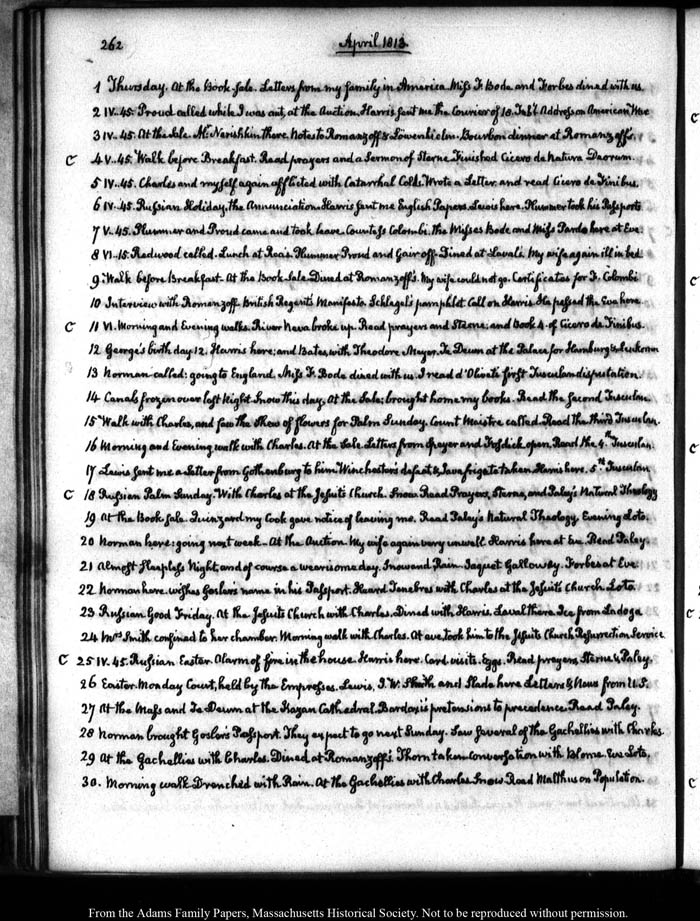 262
April 1813
1 Thursday. At the Book-Sale. Letters from my family in America. Miss F. Bode and Forbes dined with us.
2 IV-45. Proud called while I was out, at the Auction. Harris sent me the Courier of 18. Feby. Address on American War
3 IV-45. At the Sale. Mr Narishkin there. Notes to Romanzoff & Löwenhielm. Bourbon dinner at Romanzoff's.
C 4 V-45. Walk before Breakfast. Read prayers and a Sermon of Sterne. Finished Cicero de Natura Deorum.
5 IV-45. Charles and myself again afflicted with Catarrhal Colds. Wrote a Letter and read Cicero de Finibus.
6 IV-45. Russian Holiday, the Annunciation. Harris sent me English Papers. Lewis here. Plummer took his Passports
7 V-45. Plummer and Proud came and took leave. Countess Colombi. the Misses Bode and Miss Pardo here at Eve.
8 VI-15. Redwood called. Lunch at Rea's. Plummer Proud and Gair off. Dined at Laval's. My wife again ill in bed
9 Walk before Breakfast. At the Book-Sale. Dined at Romanzoff's. My wife could not go. Certificates for F. Colombi
10 Interview with Romanzoff. British Regent's Manifesto. Schlegel's pamphlet. Call on Harris. He passed the Eve here.
C 11 VI. Morning and Evening walks. River Neva broke up. Read prayers and Sterne; and Book 4. of Cicero de Finibus.
12 George's birth day 12. Harris here; and Bates with Theodore Meyer. Te Deum at the Palace for Hamburg &
13 Norman called; going to England. Miss F. Bode dined with us. I read d'Olivet's first Tusculan disputation.
14 Canals frozen over last Night. Snow this day. At the Sale; brought home my books. Read the second Tusculan.
15 Walk with Charles, and saw the Show of flowers for Palm Sunday. Count Maistre called. Read the third Tusculan.
16 Morning and Evening walk with Charles. At the Sale. Letters from Speyer and Fosdick open. Read the 4.th Tusculan.
17 Lewis sent me a Letter from Gothenburg to him. Winchester's defeat & Java frigate taken. Harris here. 5th Tusculan
C 18 Russian Palm Sunday. With Charles at the Jesuits Church. Snow. Read Prayers, Sterne, and Paley's Natural Theology
19 At the Book-Sale. my Cook gave notice of leaving me. Read Paley's Natural Theology. Evening Loto.
20 Norman here; going next week. At the Auction. My wife again very unwell. Harris here at Eve. Read Paley.
21 Almost sleepless Night, and of course a wearisome day. Snow and Rain. Jaquet Galloway. Forbes at Eve
22 Norman here. wishes Gosler's name in his Passport. Heard Tenebras with Charles at the Jesuits' Church. Loto.
23 Russian Good Friday. At the Jesuits Church with Charles. Dined with Harris. Laval there. Ice from Ladoga
24 Mrs Smith confined to her chamber. Morning walk with Charles. At eve took him to the Jesuits Church. Resurrection Service
C 25 IV. 45. Russian Easter. Alarm of fire in the house. Harris here. Card visits. Eggs. Read prayers, Sterne & Paley.
26 Easter Monday Court, held by the Empresses. Lewis, J. W. Smith and Slade here. Letters & News from U.S.
27 At the Mass and Te Deum at the Kazan Cathedral. Bardaxi's pretensions to precedence. Read Paley.
28 Norman brought Gosler's Passport. They expect to go next Sunday. Saw several of the Gachellies with Charles.
29 At the Gachellies with Charles. Dined at Romanzoff's. Thorn taken. Conversation with Blome. Eve Loto.
30. Morning walk. Drenched with Rain. At the Gachellies with Charles. Snow. Read Malthus on Population.
From the Adams Family Papers, Massachusetts Historical Society. Not to be reproduced without permission.